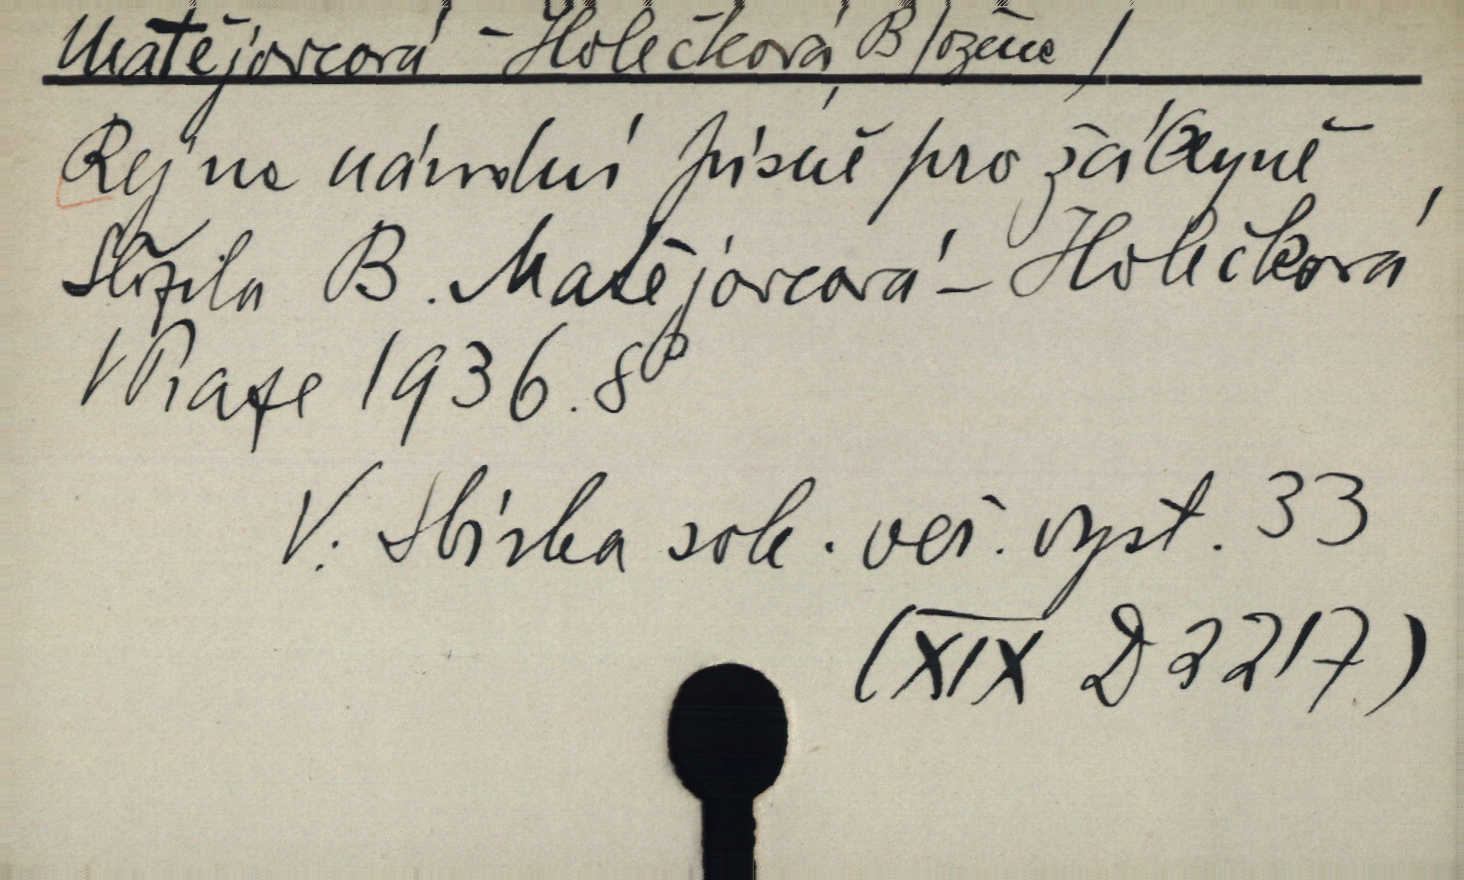 Matějovcová - Holečková B/ožena/
Rej na národní písně pro žákyně
Složila B. Matějovcová - Holečková
V Praze 1936. 8°
V: Sbírka sok. veř. vyst. 33
(XIX D 2217)